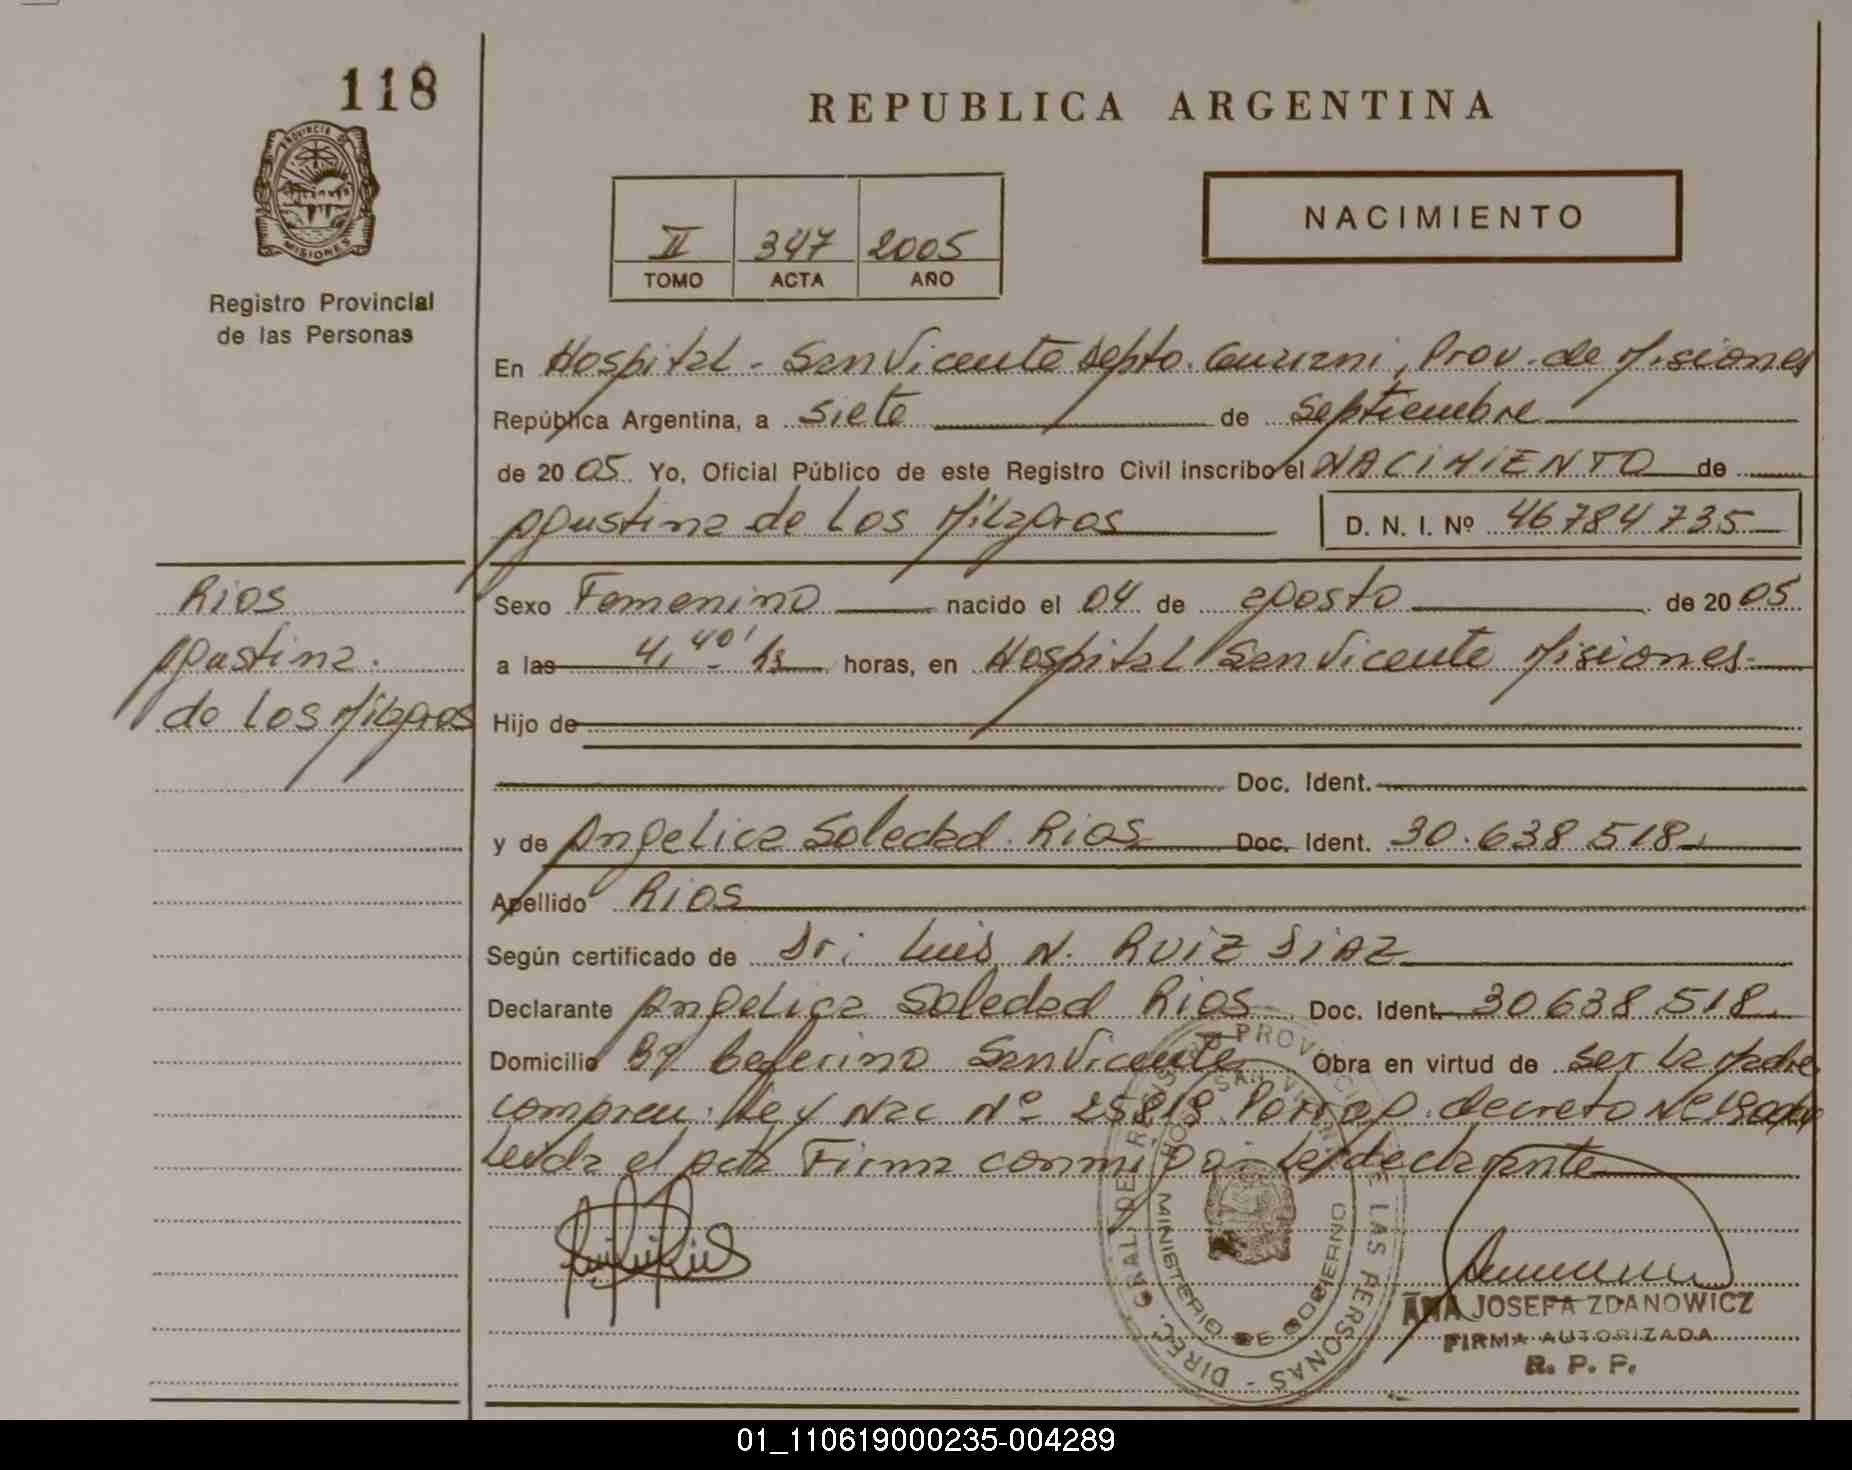 118
REPUBLICA ARGENTINA
PROVINCIA DE
MISIONES
Registro Provincial
de las Personas
II 347 2005
TOMO ACTA AÑO
NACIMIENTO
En Hospital - San Vicente Depto. Guarani, Prov. de Misiones
República Argentina, a siete de Septiembre
de 2005. Yo, Oficial Público de este Registro Civil inscribo el NACIMIENTO de
Agustina de Los Milagros D. N. I. Nº 46784735
Rios
Agustina.
de Los Milagros
Sexo Femenino nacido el 04 de agosto de 2005
a las 4,40' hs horas, en Hospital San Vicente Misiones
Hijo de
Doc. Ident.
y de Angelica Soledad Rios Doc. Ident. 30.638.518
Apellido Rios
Según certificado de Dr: Luis N. RUIZ DIAZ
Declarante Angelica Soledad Rios Doc. Ident. 30638518
Domicilio Bº Ceferino San Vicente Obra en virtud de ser la Madre
Ley Nac Nº 25819 decreto
Leida el acta Firma conmigo La declarante
DIREC. GRAL. DE REGISTRO PROVINCIAL DE LAS PERSONAS -
HOSP. SAN VICENTE
MINISTERIO DE GOBIERNO
ANA JOSEFA ZDANOWICZ
FIRMA AUTORIZADA
R. P. P.
01_110619000235-004289